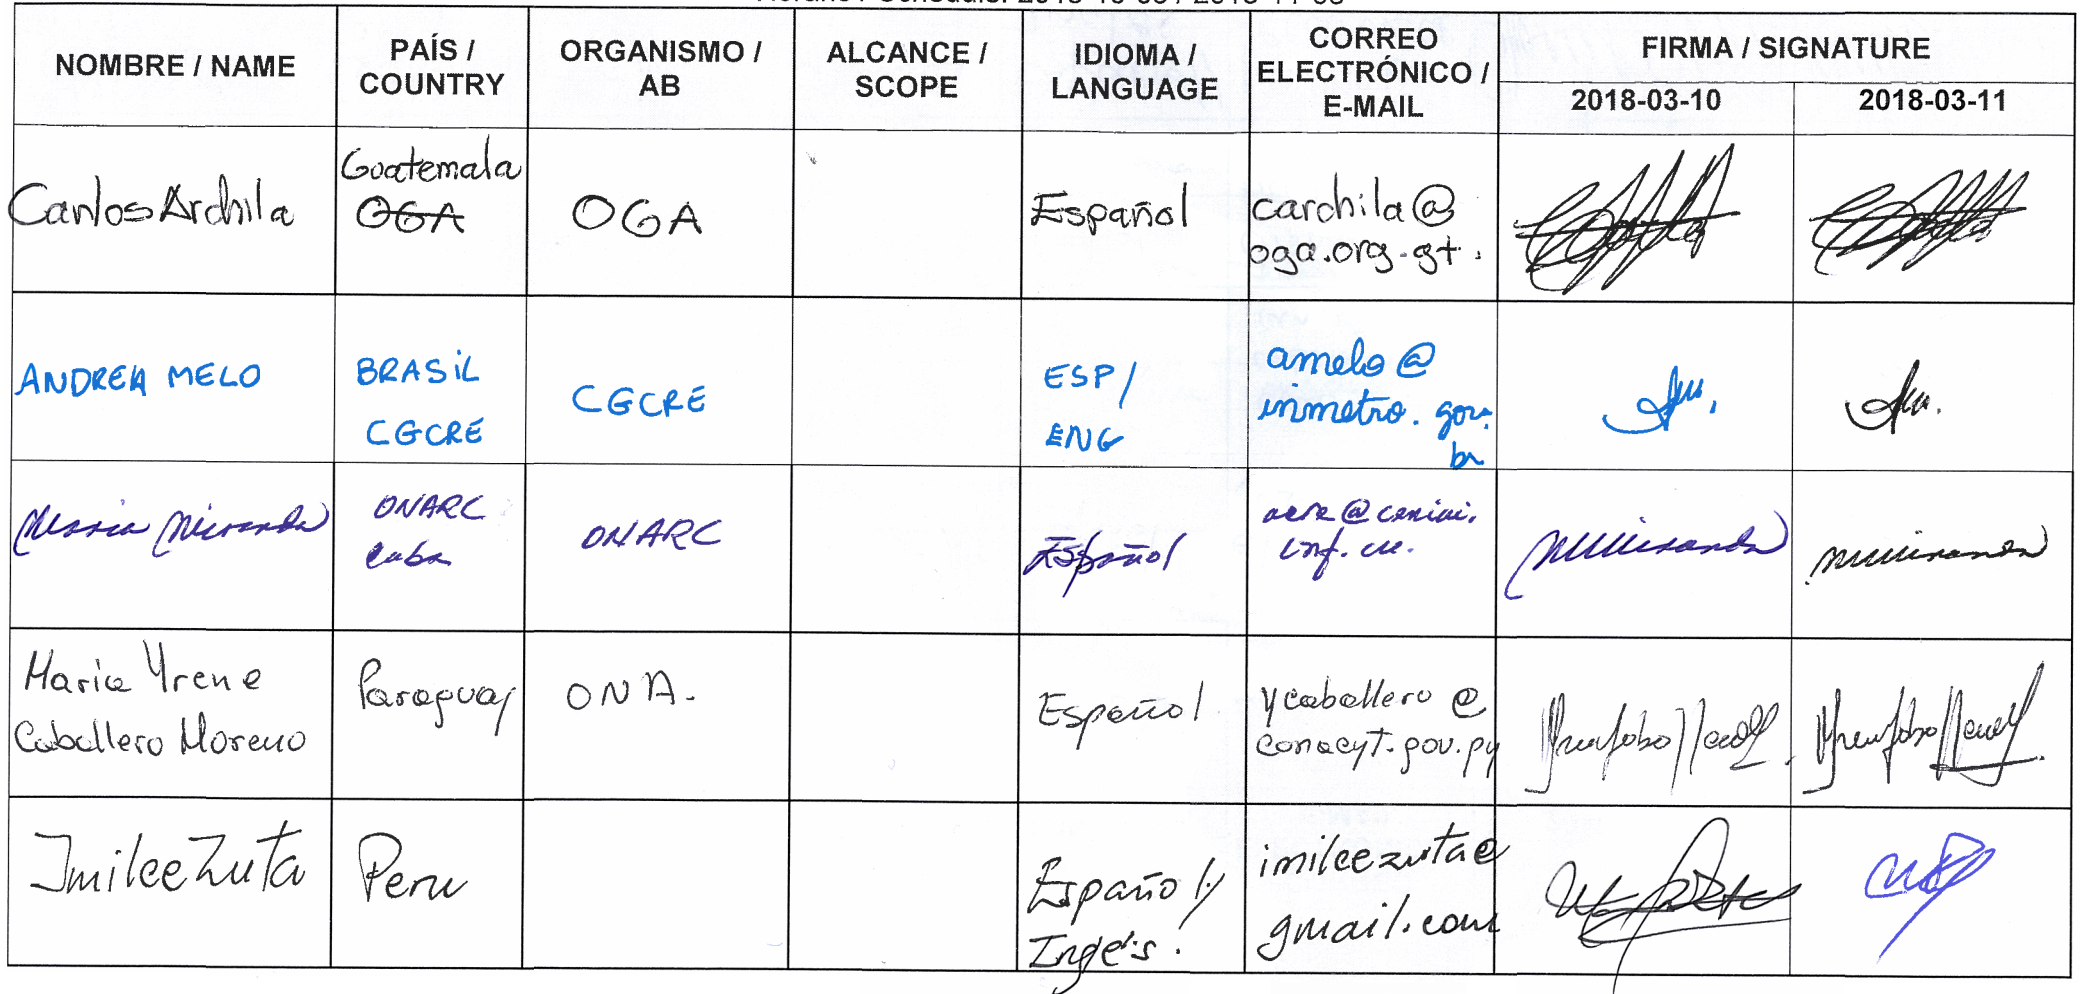 NOMBRE / NAME
PAÍS /
COUNTRY
ORGANISMO /
AB
ALCANCE /
SCOPE
IDIOMA /
LANGUAGE
CORREO
ELECTRÓNICO /
E-MAIL
FIRMA / SIGNATURE
2018-03-10
2018-03-11
Carlos Archila
Guatemala
OGA
OGA
Español
carchila@
oga.org.gt.
ANDREA MELO
BRASIL
CGCRE
CGCRE
ESP/
ENG
amelo@
inmetro.gov.
br
Maria Miranda
ONARC
Cuba
ONARC
Español
inf.cu.
Maria Yrene
Caballero Moreno
Paraguay
ONA.
Español
ycaballero@
conacyt.gov.py
Imilce Zuta
Peru
Español/
Inglés.
imilcezuta@
gmail.com